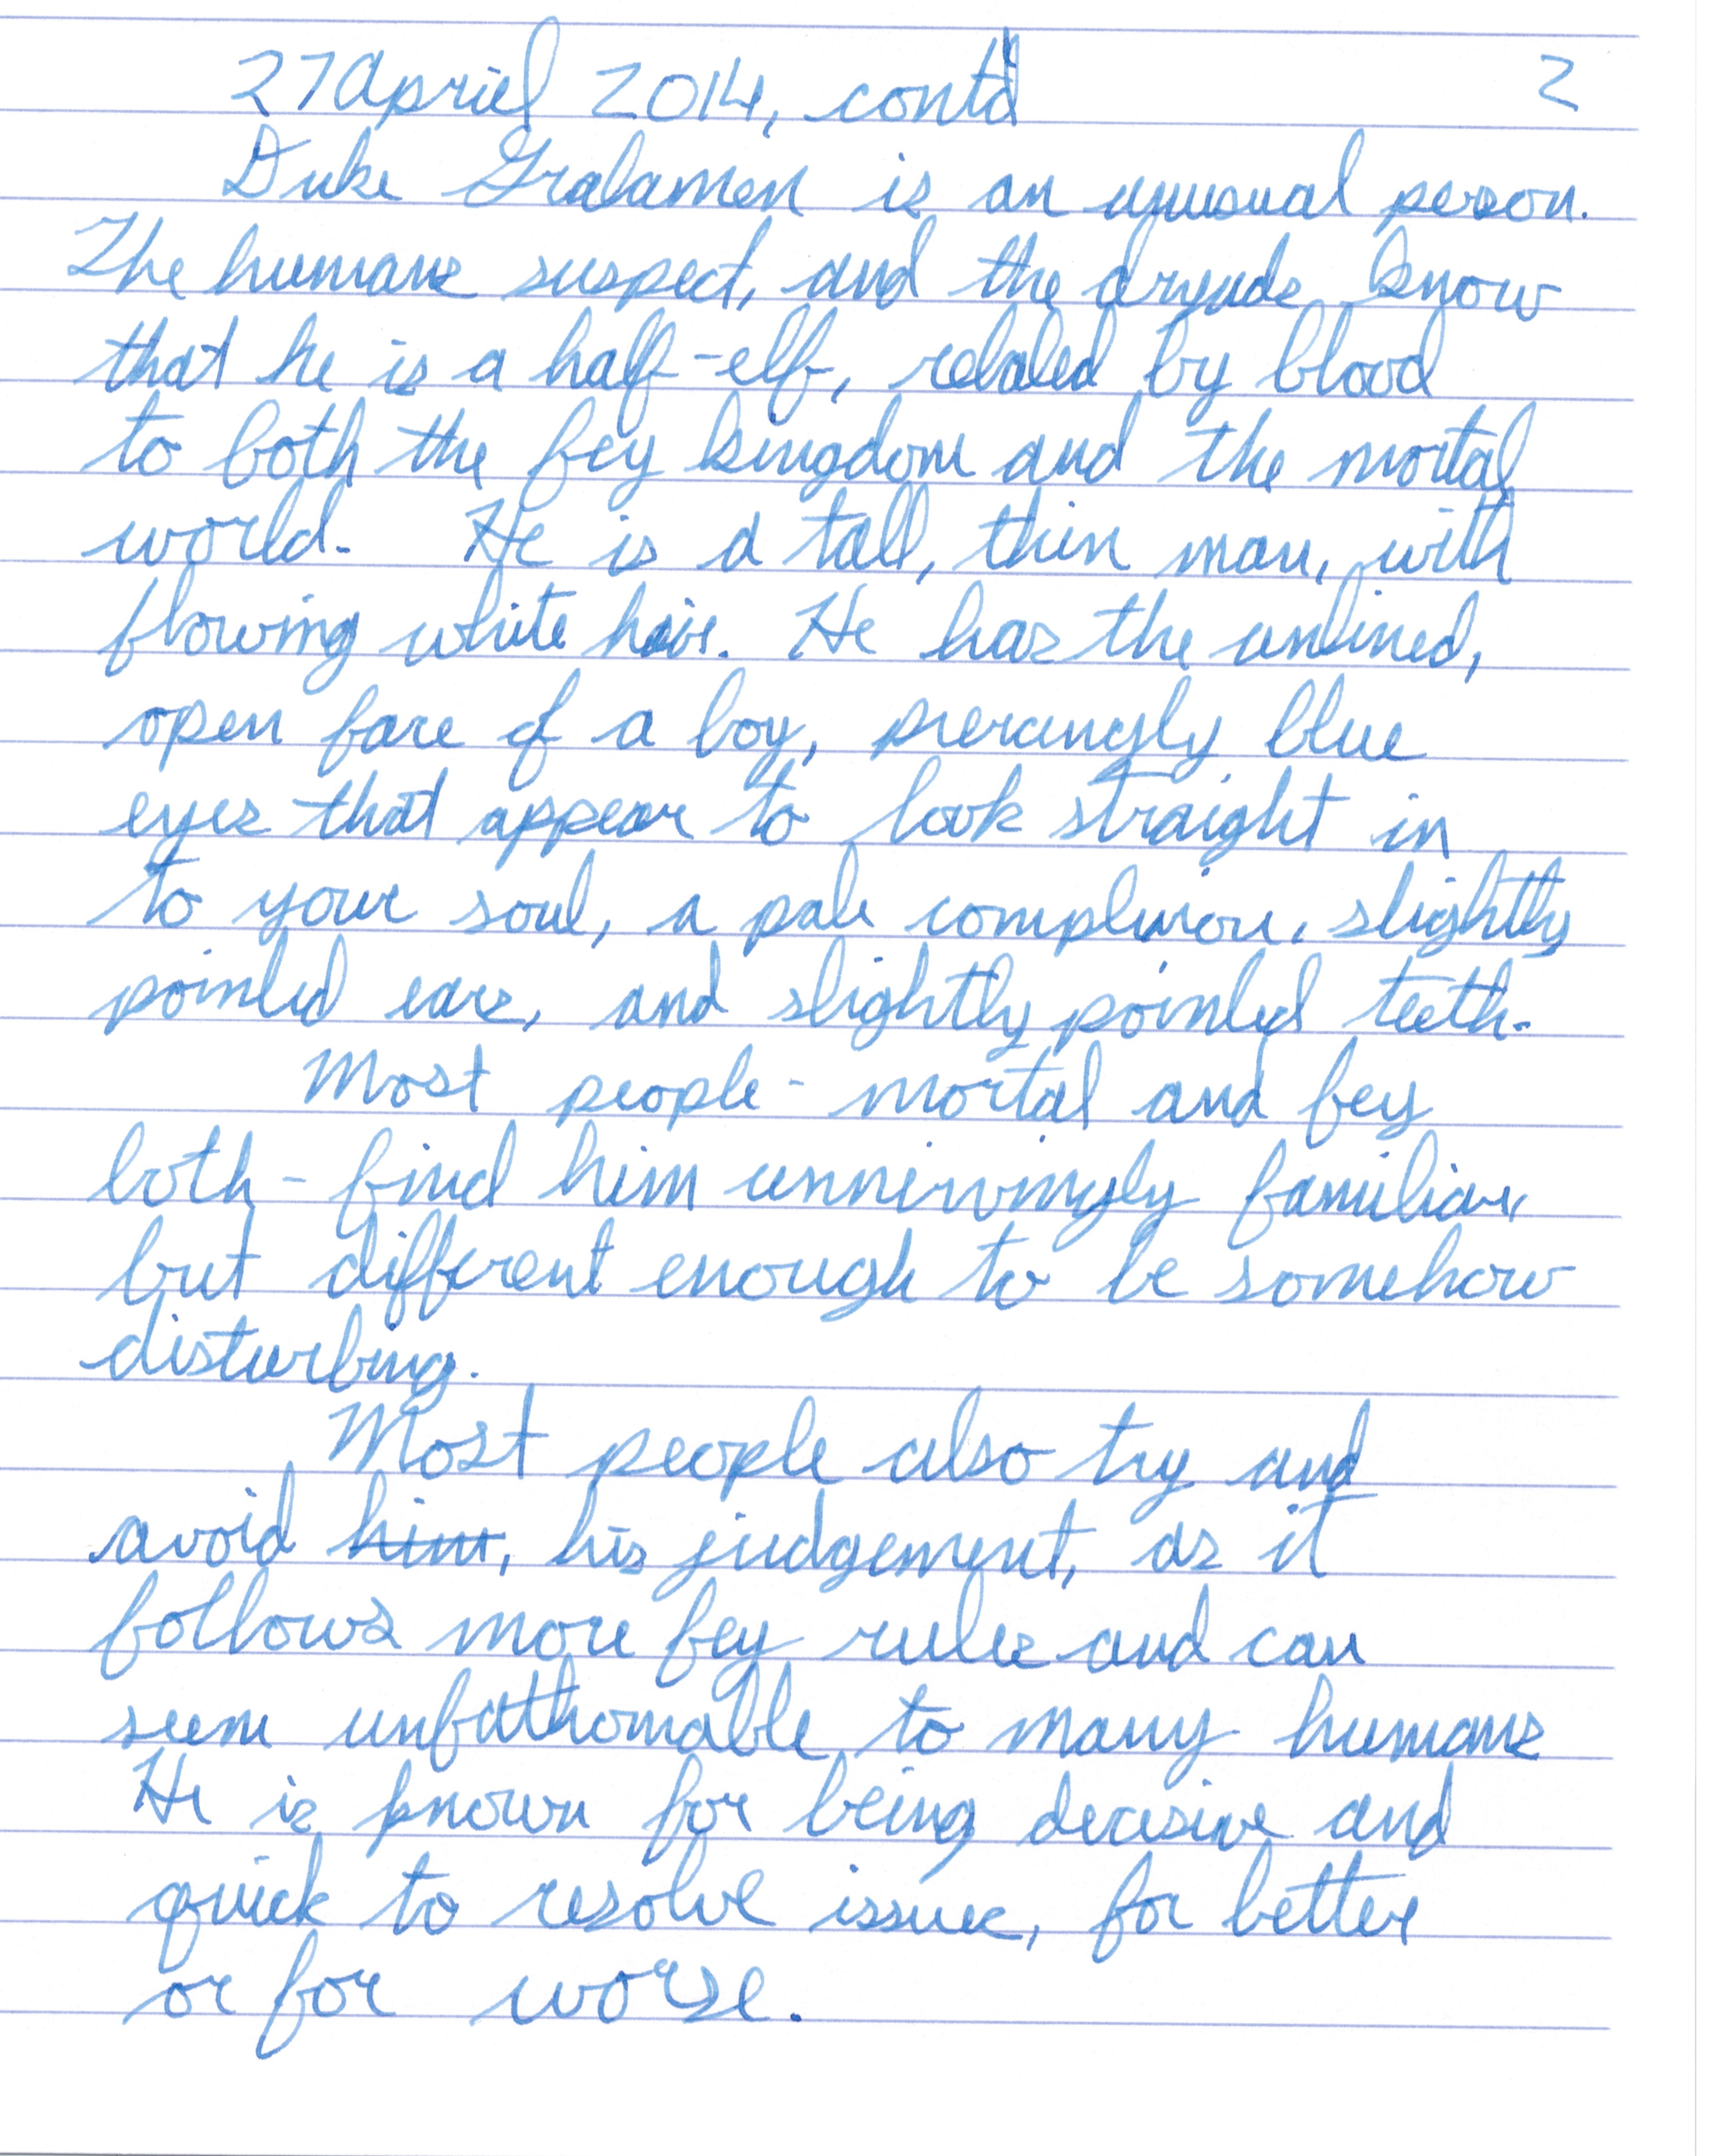 27 April 2014, contd 2
Duke Gralamen is an unusual person.
The humans suspect, and the dryads know
that he is a half-elf, related by blood
to both the fey kingdom and the mortal
world. He is a tall, thin man, with
flowing white hair. He has the unlined,
open face of a boy, piercingly blue
eyes that appear to look straight in
to your soul, a pale complexion, slightly
pointed ears, and slightly pointed teeth.
Most people - mortal and fey
both - find him unnervingly familiar,
but different enough to be somehow
disturbing.
Most people also try and
avoid him, his judgement, as it
follows more fey rules and can
seem unfathomable to many humans
He is known for being decisive and
quick to resolve issues, for better
or for worse.